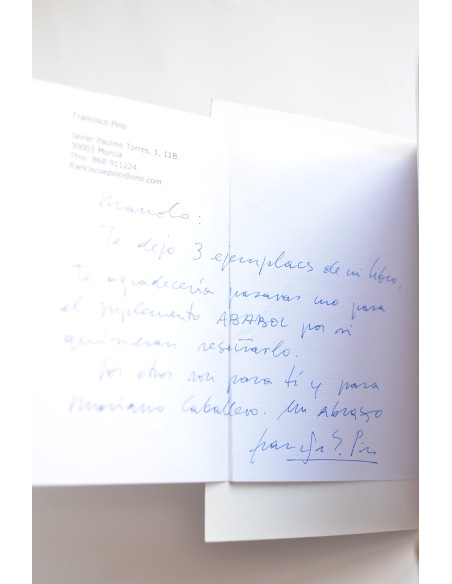 Francisco Pino
Javier Paulino Torres, 1, 11B.
30003 Murcia
Tfno. 868 911224
franciscoepino@ono.com
Manolo:
Te dejo 3 ejemplares de mi libro.
Te agradecería pasaras uno para
el suplemento ABABOL por si
quisieran reseñarlo.
Los otros son para ti y para
Mariano Caballero. Un abrazo
Pino